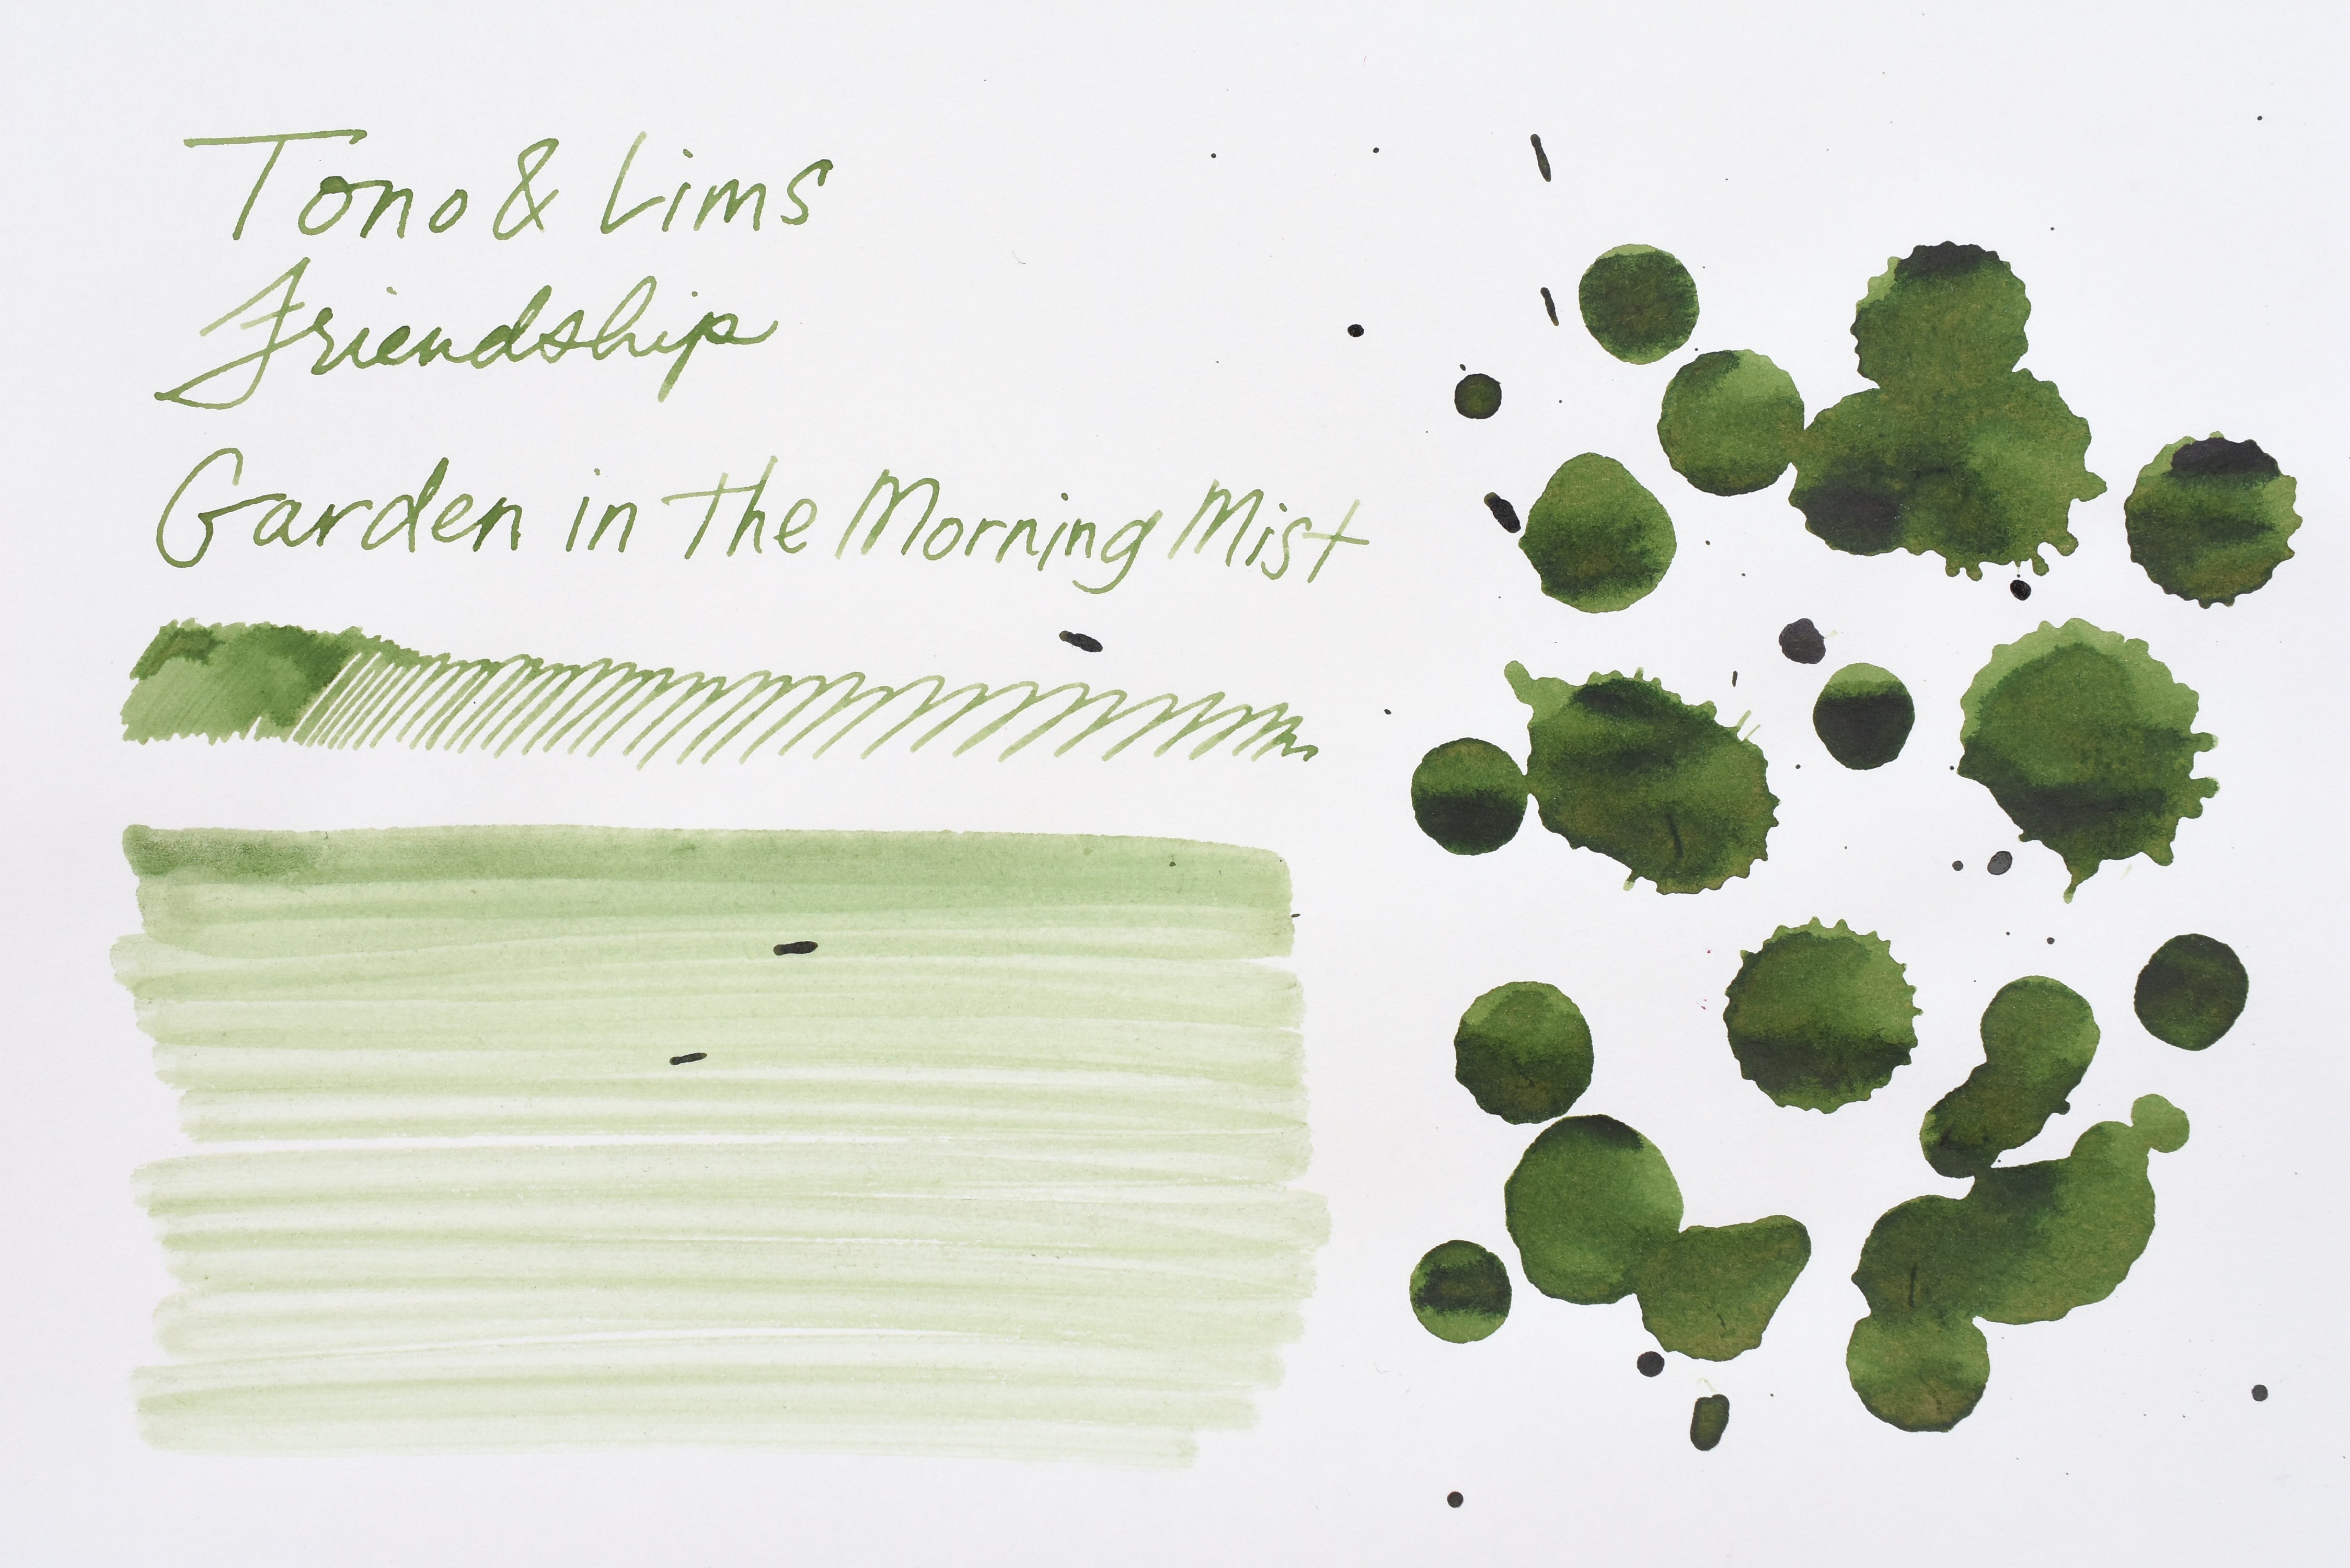 Tono & Lims
Friendship
Garden in the Morning Mist